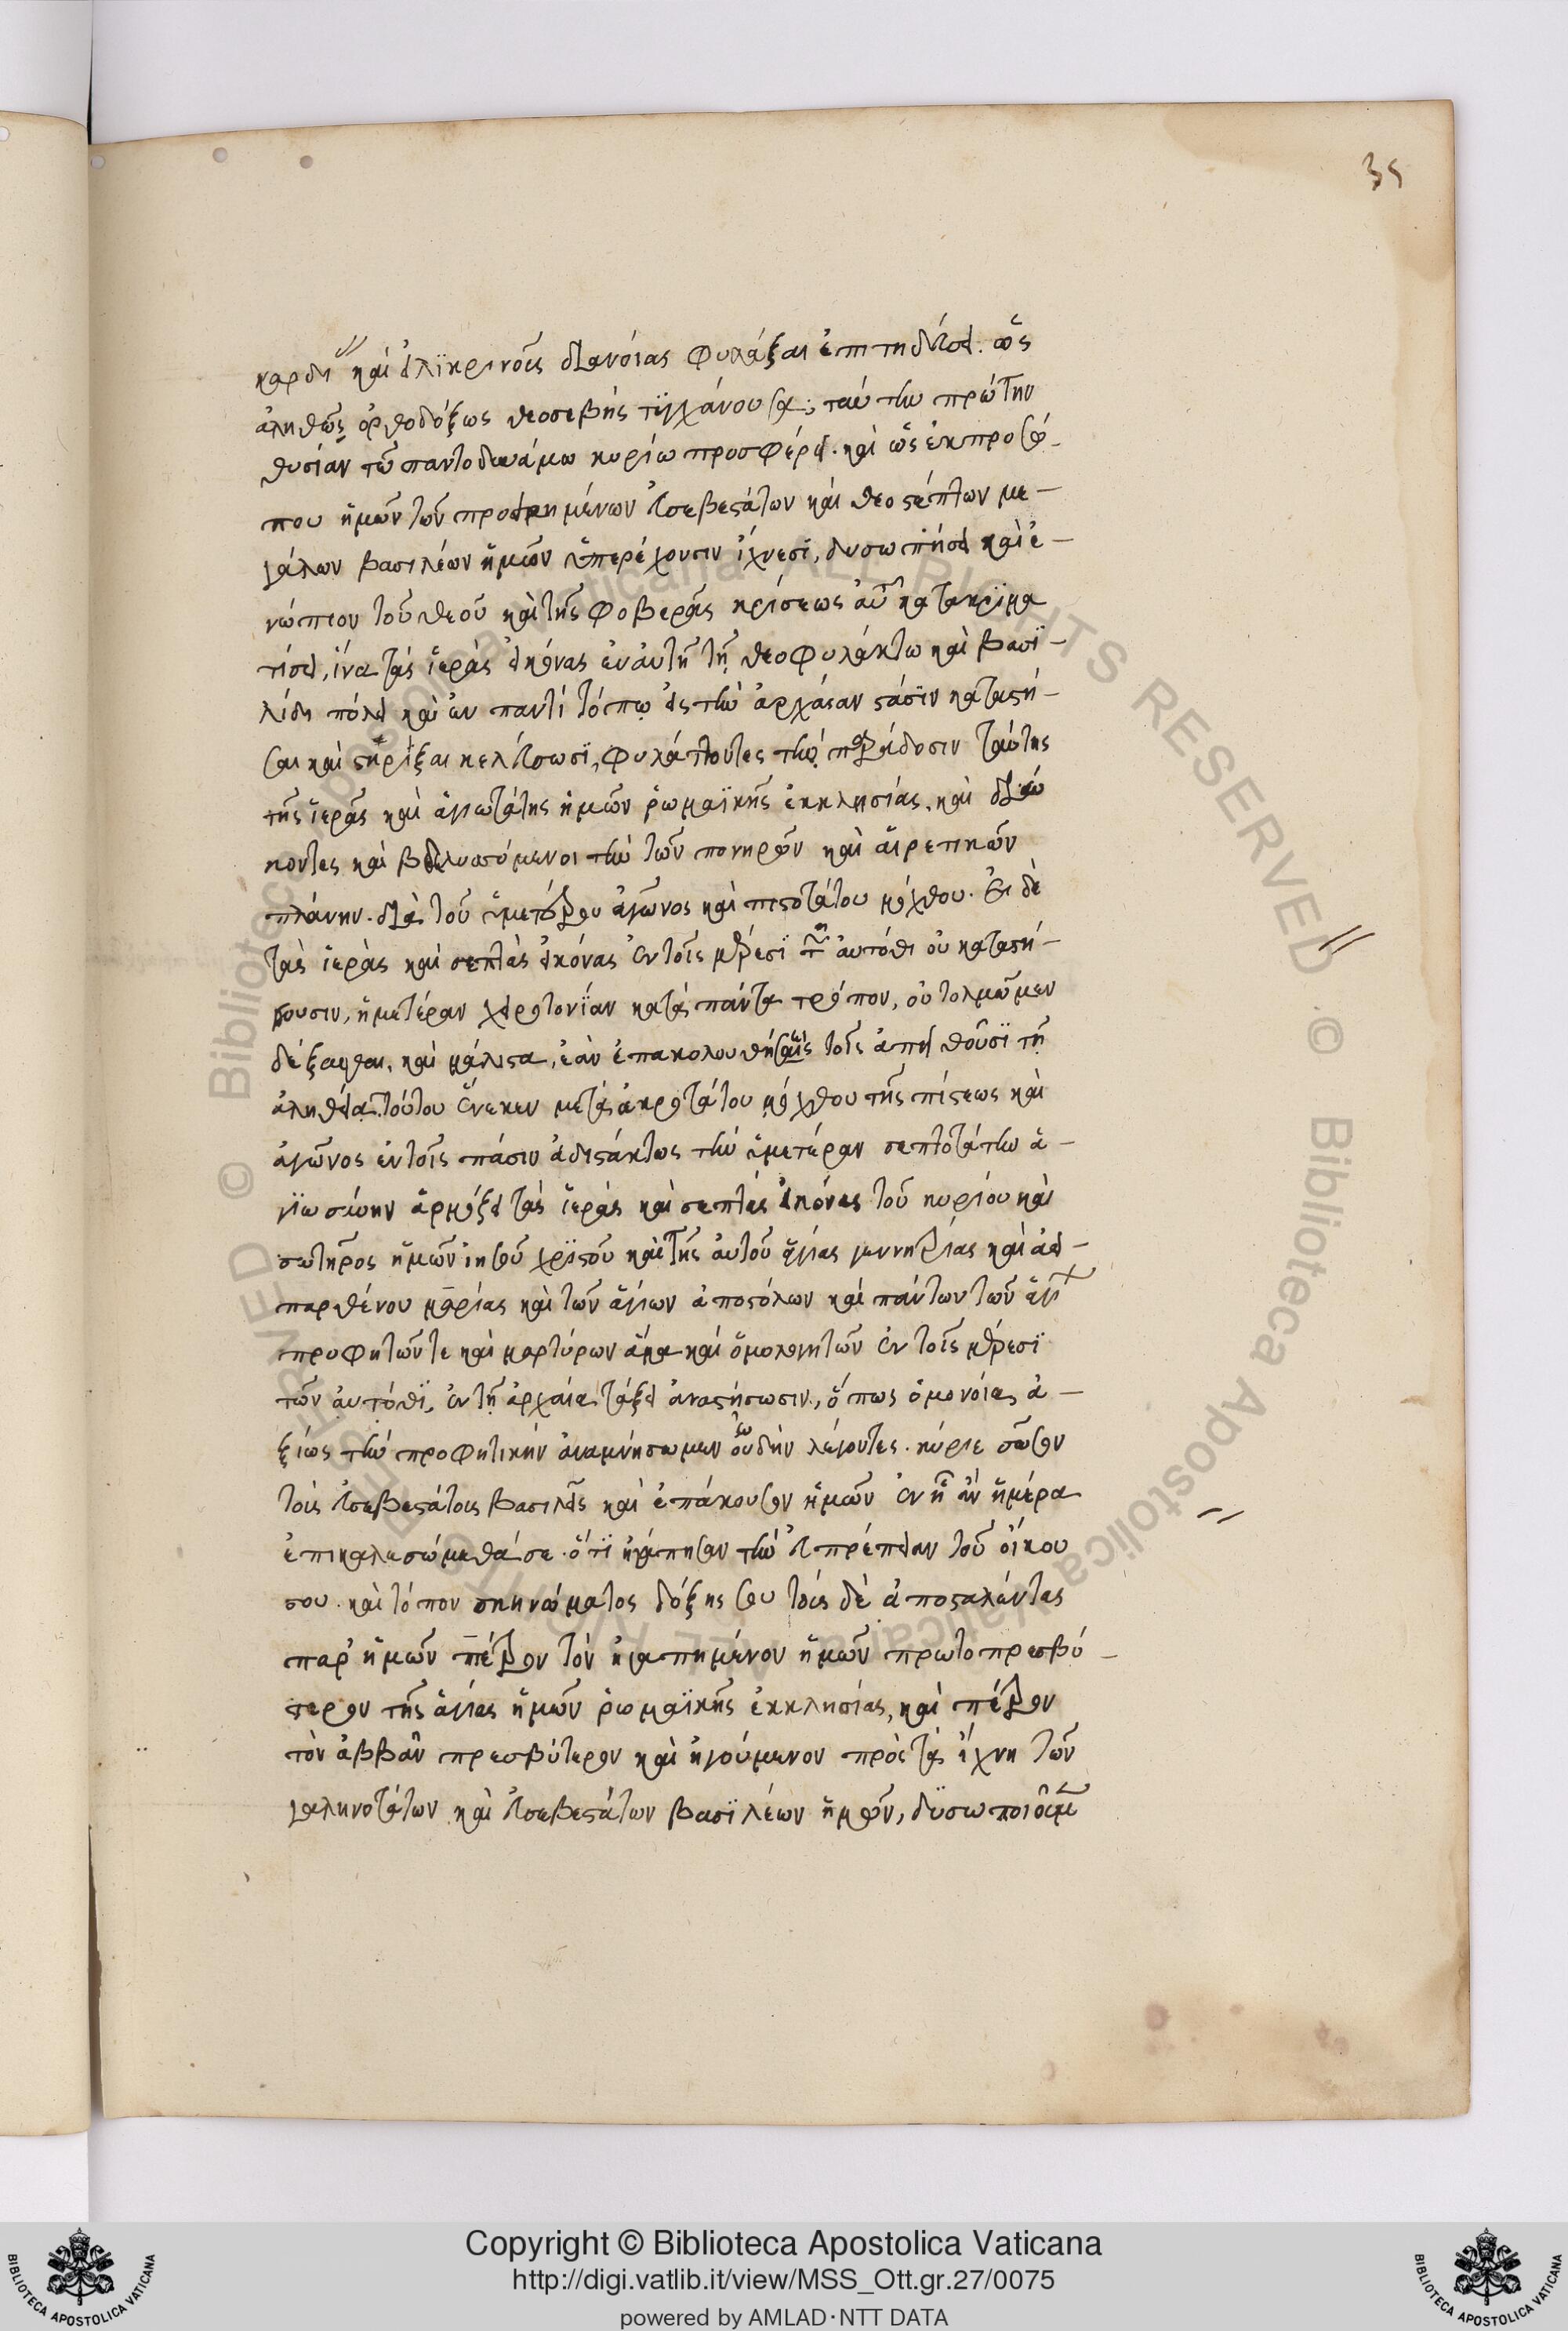 35
καρδι καὶ εἰλϊκρινοῖς διανοίας φυλάξαι ἐπιτηδεύσει. ὡς
ἀληθῶς ὀρθοδόξως θεοσεβὴς τϊγχάνουσα, ταύτην πρώτην
θυσίαν τῶ παντοδυνάμω κυρίω προσφέρει. καὶ ὡς ἐκ προσώ-
που ἡμῶν τῶν προειρημένων εὐσεβεστάτων καὶ θεοστέπτων με-
γάλων βασιλέων ἡμῶν ὑπερέχουσιν ἴχνεσϊ, δυσωπήσει καὶ ἐ-
νώπιον τοῦ θεοῦ καὶ τῆς φοβερᾶς κρίσεως αὐ κατακρϊμα
τίσει, ἵνα τὰς ἱερὰς εἰκόνας ἐν αὐτῇ τῇ θεοφυλάκτω καὶ βασϊ-
λίδι πόλει καὶ ἐν παντὶ τόπῳ εἰς τὴν ἀρχαίαν στάσϊν καταστή-
σαι καὶ στηρίξαι κελεύσωσϊ, φυλάττοντες τὴν παράδοσιν ταύτης
τῆς ἱερᾶς καὶ ἁγιωτάτης ἡμῶν ῥωμαϊκῆς ἐκκλησίας, καὶ διώ
κοντες καὶ βδελυσσόμενοι τὴν τῶν πονηρῶν καὶ αἱρετικῶν
πλάνην. διὰ τοῦ ὑμετέρου ἀγῶνος καὶ πιστοτάτου μόχθου. Εἰ δὲ
τὰς ἱερὰς καὶ σεπτὰς εἰκόνας ἐν τοῖς μέρεσϊ τῶν αὐτόθι οὐ καταστή-
σουσιν, ἡμετέραν χειροτονΐαν κατὰ πάντα τρόπον, οὐ τολμῶμεν
δέξασθαι, καὶ μάλιστα, ἐὰν ἐπακολουθήσῃς τοῖς ἀπειθοῦσϊ τῇ
ἀληθείᾳ. τούτου ἕνεκεν μετὰ ἀκροτάτου μόχθου τῆς πίστεως καὶ
ἀγῶνος ἐν τοῖς πάσιν ἀδιστάκτως τὴν ὑμετέραν σεπτοτάτην ἁ-
γϊωσύνην ἁρμόξει τὰς ἱερὰς καὶ σεπτὰς εἰκόνας τοῦ κυρίου καὶ
σωτῆρος ἡμῶν ἰησοῦ χρϊστοῦ καὶ τῆς αὐτοῦ ἁγίας γεννητρίας καὶ ἀει-
παρθένου μαρίας καὶ τῶν ἁγίων ἀποστόλων καὶ πάντων τῶν ἁγί
προφητῶν τε καὶ μαρτύρων ἅμα καὶ ὁμολογητῶν ἐν τοῖς μέρεσϊ
τῶν αὐτόθϊ, ἐν τῇ ἀρχαία τάξει ἀναστήσωσιν, ὅπως ὁμονοίας ἀ-
ξίως τὴν προφητικὴν ἀναμνήσωμεν ὠδὴν λέγοντες. κύριε σῶσον
τοὺς εὐσεβεστάτους βασιλεῖς καὶ ἐπάκουσον ἡμῶν ἐν ᾗ ἂν ἡμέρα
ἐπικαλεσώμεθά σε. ὅτϊ ἠγάπησαν τὴν εὐπρέπειαν τοῦ οἴκου
σου. καὶ τόπον σκηνώματος δόξης σου τοὺς δὲ ἀποσταλέντας
παρ' ἡμῶν πέτρον τὸν ἠγαπημένον ἡμῶν πρωτοπρεσβύ-
τερον τῆς ἁγίας ἡμῶν ῥωμαϊκῆς ἐκκλησίας, καὶ πέτρον
τὸν ἀββᾶν πρεσβύτερον καὶ ἡγούμενον πρὸς τὰ ἴχνη τῶν
γαληνοτάτων καὶ εὐσεβεστάτων βασϊλέων ἡμῶν, δυσωποιοῦμεν
Copyright © Biblioteca Apostolica Vaticana
http://digi.vatlib.it/view/MSS_Ott.gr.27/0075
powered by AMLAD·NTT DATA